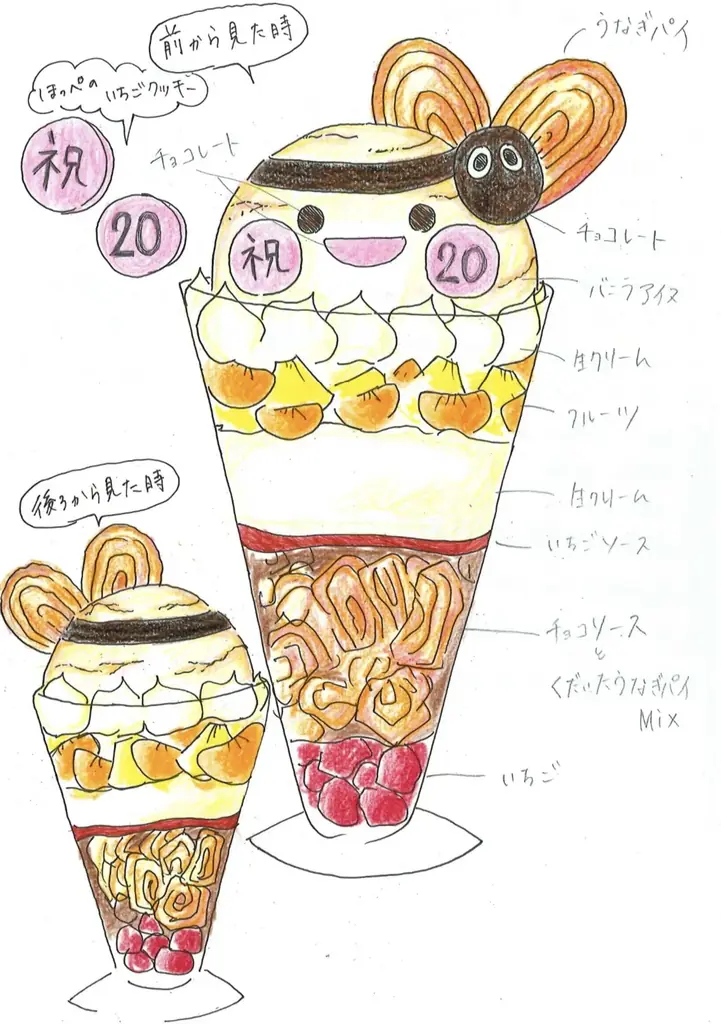 前から見た時
うなぎパイ
ほっぺの
いちごクッキー
祝
20
チョコレート
祝
20
チョコレート
バニラアイス
生クリーム
フルーツ
生クリーム
いちごソース
チョコソース
と
くだいたうなぎパイ
Mix
いちご
後ろから見た時